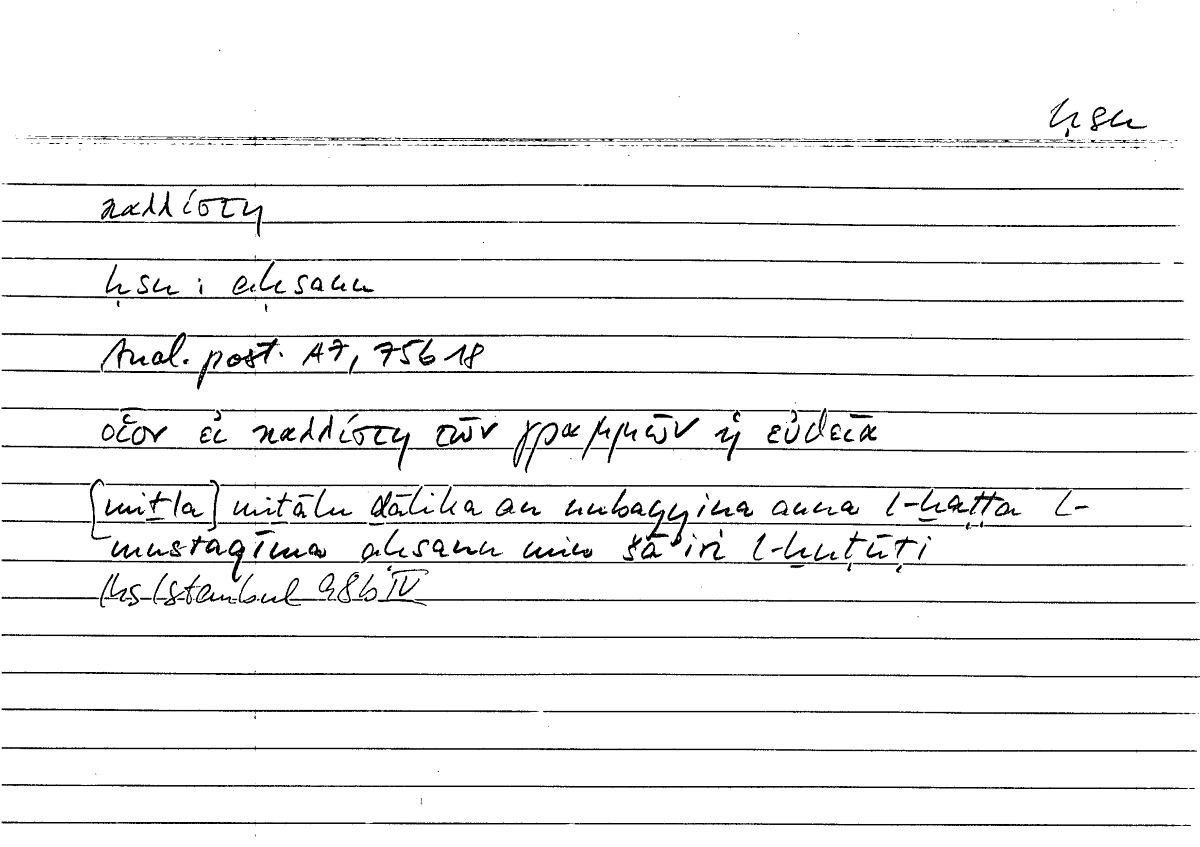 ḥsn
καλλίστη
ḥsn : aḥsanu
Anal. post. A7, 75b18
οἷον εἰ καλλίστη τῶν γραμμῶν ἡ εὐθεῖα
[miṯla] miṯālu ḏālika an nubayyina anna l-ḫaṭṭa l-
mustaqīma aḥsanu min sāʾiri l-ḫuṭūṭi
Hs Istanbul 98b IV